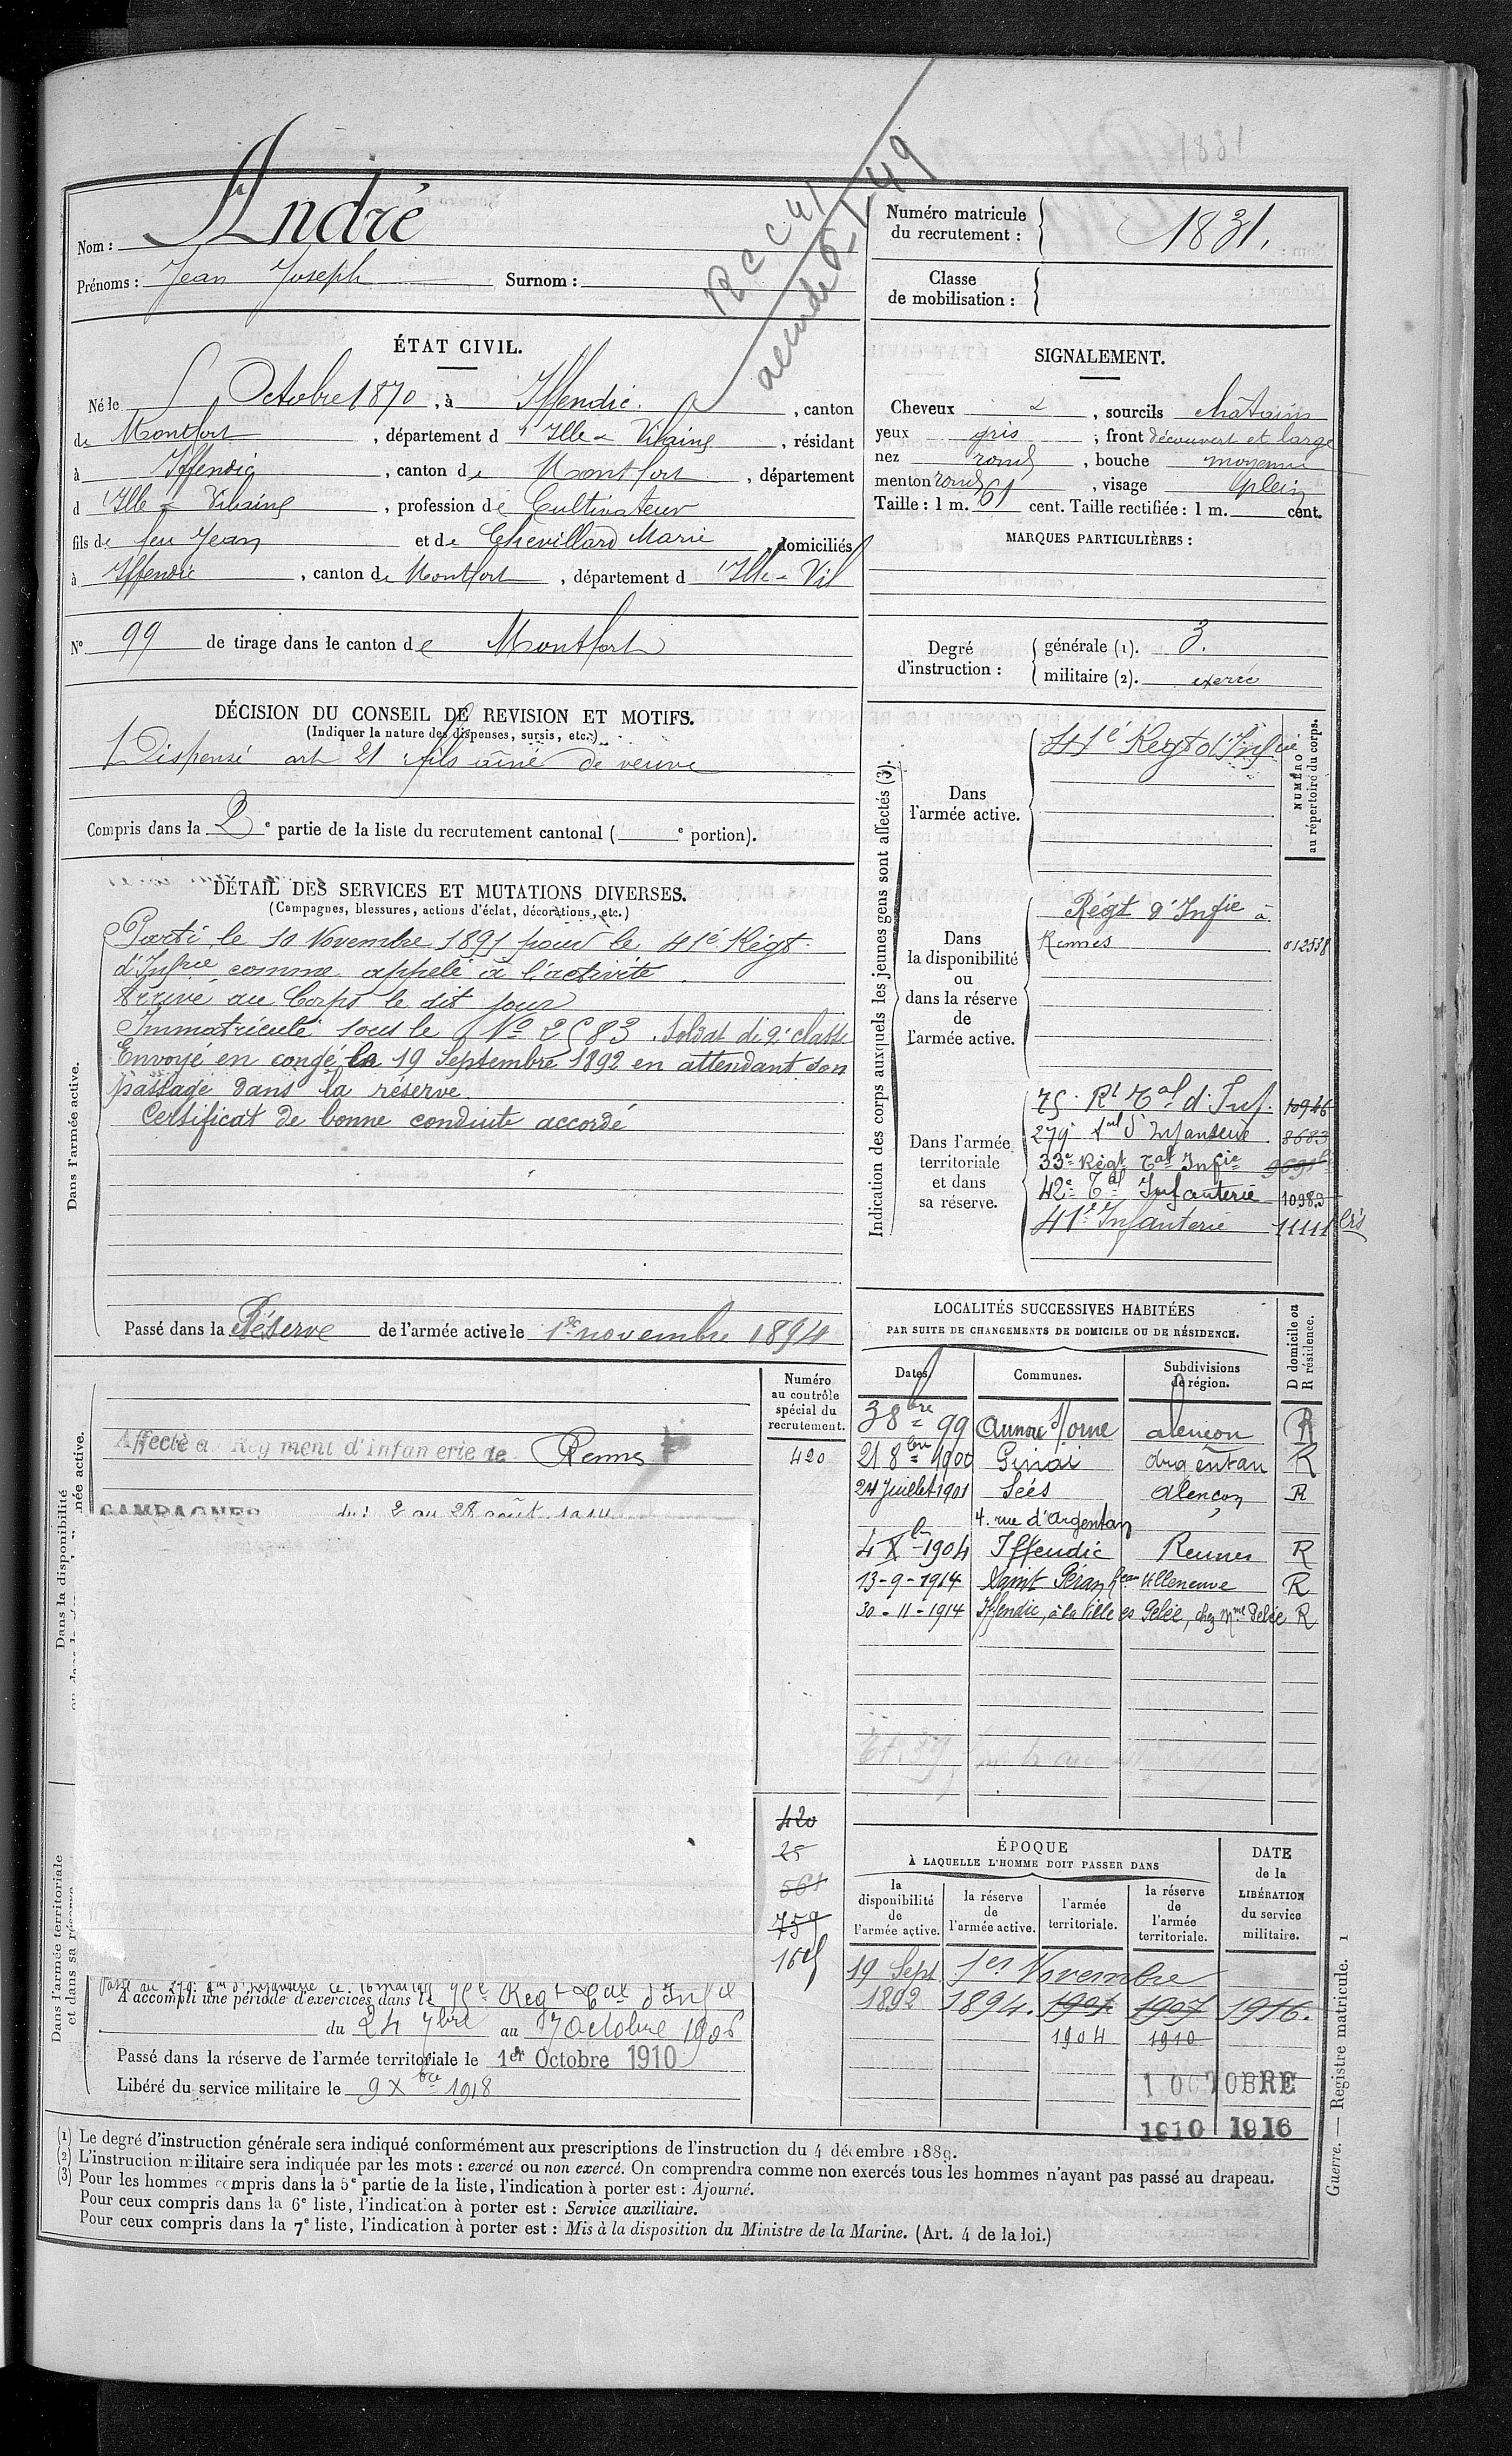 1831
Nom : André
Prénoms : Jean Joseph Surnom :
R C C 41
6/1/49
Numéro matricule
du recrutement : 1831.
Classe
de mobilisation :
ÉTAT CIVIL.
Né le 5 Octobre 1870, à Iffendic, canton
de Montfort, département d'Ille-&-Vilaine, résidant
à Iffendic, canton de Montfort, département
d'Ille-&-Vilaine, profession de Cultivateur
fils de feu Jean et de Chevillard Marie, domiciliés
à Iffendic, canton de Montfort, département d'Ille-&-Vil
SIGNALEMENT.
Cheveux &, sourcils châtains
yeux gris; front découvert et large
nez rond, bouche moyenne
menton rond, visage plein
Taille : 1 m. 61 cent. Taille rectifiée : 1 m. cent.
MARQUES PARTICULIÈRES :
N° 99 de tirage dans le canton de Montfort
Degré
d'instruction :
générale (1). 3.
militaire (2). exercé
DÉCISION DU CONSEIL DE REVISION ET MOTIFS.
(Indiquer la nature des dispenses, sursis, etc.)
Dispensé art 21 fils aîné de veuve
Compris dans la 2e partie de la liste du recrutement cantonal ( e portion).
DÉTAIL DES SERVICES ET MUTATIONS DIVERSES.
(Campagnes, blessures, actions d'éclat, décorations, etc.)
Dans l'armée active.
Parti le 10 Novembre 1891 pour le 41e Régt
d'Infrie comme appelé à l'activité
Arrivé au Corps le dit jour
Immatriculé sous le No 2583. Soldat de 2e classe
Envoyé en congé le 19 Septembre 1892 en attendant son
passage dans la réserve
Certificat de bonne conduite accordé
Passé dans la Réserve de l'armée active le 1er novembre 1894
Indication des corps auxquels les jeunes gens sont affectés (3).
NUMÉRO
au répertoire du corps.
Dans
l'armée active.
41e Régt d'Infrie
Dans
la disponibilité
ou
dans la réserve
de
l'armée active.
Régt d'Infie à
Rennes 012538
Dans l'armée
territoriale
et dans
sa réserve.
75e Rt Tal d'Inf. 10946
279e tal d'Infanterie 8683
33e Régt Tal Infie
42e Tal Infanterie 10983
41e Infanterie 11111 bis
LOCALITÉS SUCCESSIVES HABITÉES
PAR SUITE DE CHANGEMENTS DE DOMICILE OU DE RÉSIDENCE.
D domicile ou
R résidence.
Dates. Communes. Subdivisions
de région.
3 8bre 99 Orne Alençon R
21 8bre 1900 Ginai Argentan R
24 Juillet 1901 Sées Alençon R
4. rue d'Argentan
4 Xbre 1904 Iffendic Rennes R
13-9-1914 Saint Péran R
30-11-1914 Iffendic, à la Ville es Gelée, chez Mme R
Dans la disponibilité
Numéro
au contrôle
spécial du
recrutement.
Affecté au Régiment d'Infanterie de Rennes
420
CAMPAGNES du 2 au 28 août 1914
Dans l'armée territoriale
et dans sa réserve
420
25
561
759
Passé au 279e d'Infanterie le 16 mai
A accompli une période d'exercices dans le 75e Regt Tal d'Infie
du 24 7bre au 7 Octobre 1906
Passé dans la réserve de l'armée territoriale le 1er Octobre 1910
Libéré du service militaire le 9 Xbre 1918
ÉPOQUE
À LAQUELLE L'HOMME DOIT PASSER DANS
DATE
de la
LIBÉRATION
du service
militaire.
la
disponibilité
de
l'armée active.
la réserve
de
l'armée active.
l'armée
territoriale.
la réserve
de
l'armée
territoriale.
19 Sept 1er Novembre
1892 1894. 1901 1907 1916.
1904 1910
1 OCTOBRE
1910 1916
(1) Le degré d'instruction générale sera indiqué conformément aux prescriptions de l'instruction du 4 décembre 1889.
(2) L'instruction militaire sera indiquée par les mots : exercé ou non exercé. On comprendra comme non exercés tous les hommes n'ayant pas passé au drapeau.
(3) Pour les hommes compris dans la 5e partie de la liste, l'indication à porter est : Ajourné.
Pour ceux compris dans la 6e liste, l'indication à porter est : Service auxiliaire.
Pour ceux compris dans la 7e liste, l'indication à porter est : Mis à la disposition du Ministre de la Marine. (Art. 4 de la loi.)
Guerre. — Registre matricule. 1